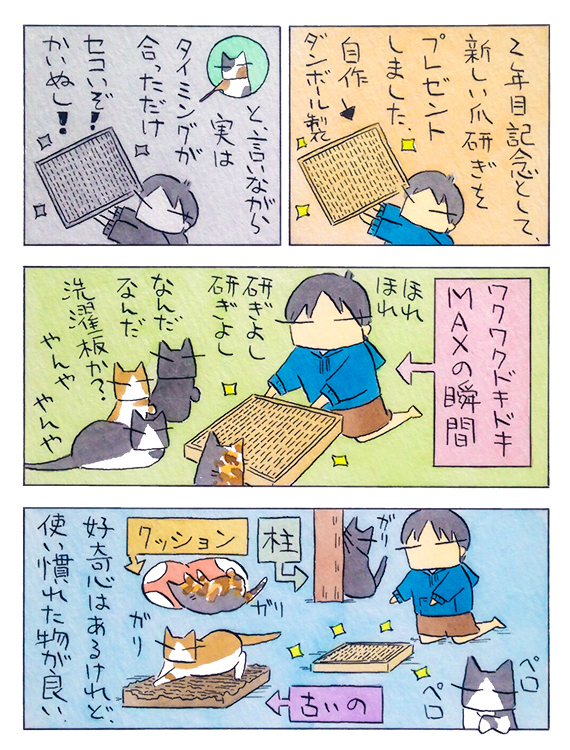 2年目記念として、
新しい爪研ぎを
プレゼント
しました。
自作
ダンボール製
と、言いながら
実は
タイミングが
合っただけ
セコいぞ!
かいぬし!
ワクワクドキドキ
MAXの瞬間
ほれ
ほれ
研ぎよし
研ぎよし
なんだ
なんだ
洗濯板か?
やんや
やんや
ガリ
柱
クッション
ガリ
ガリ
古いの
ペロ
ペロ
好奇心はあるけれど、
使い慣れた物が良い。